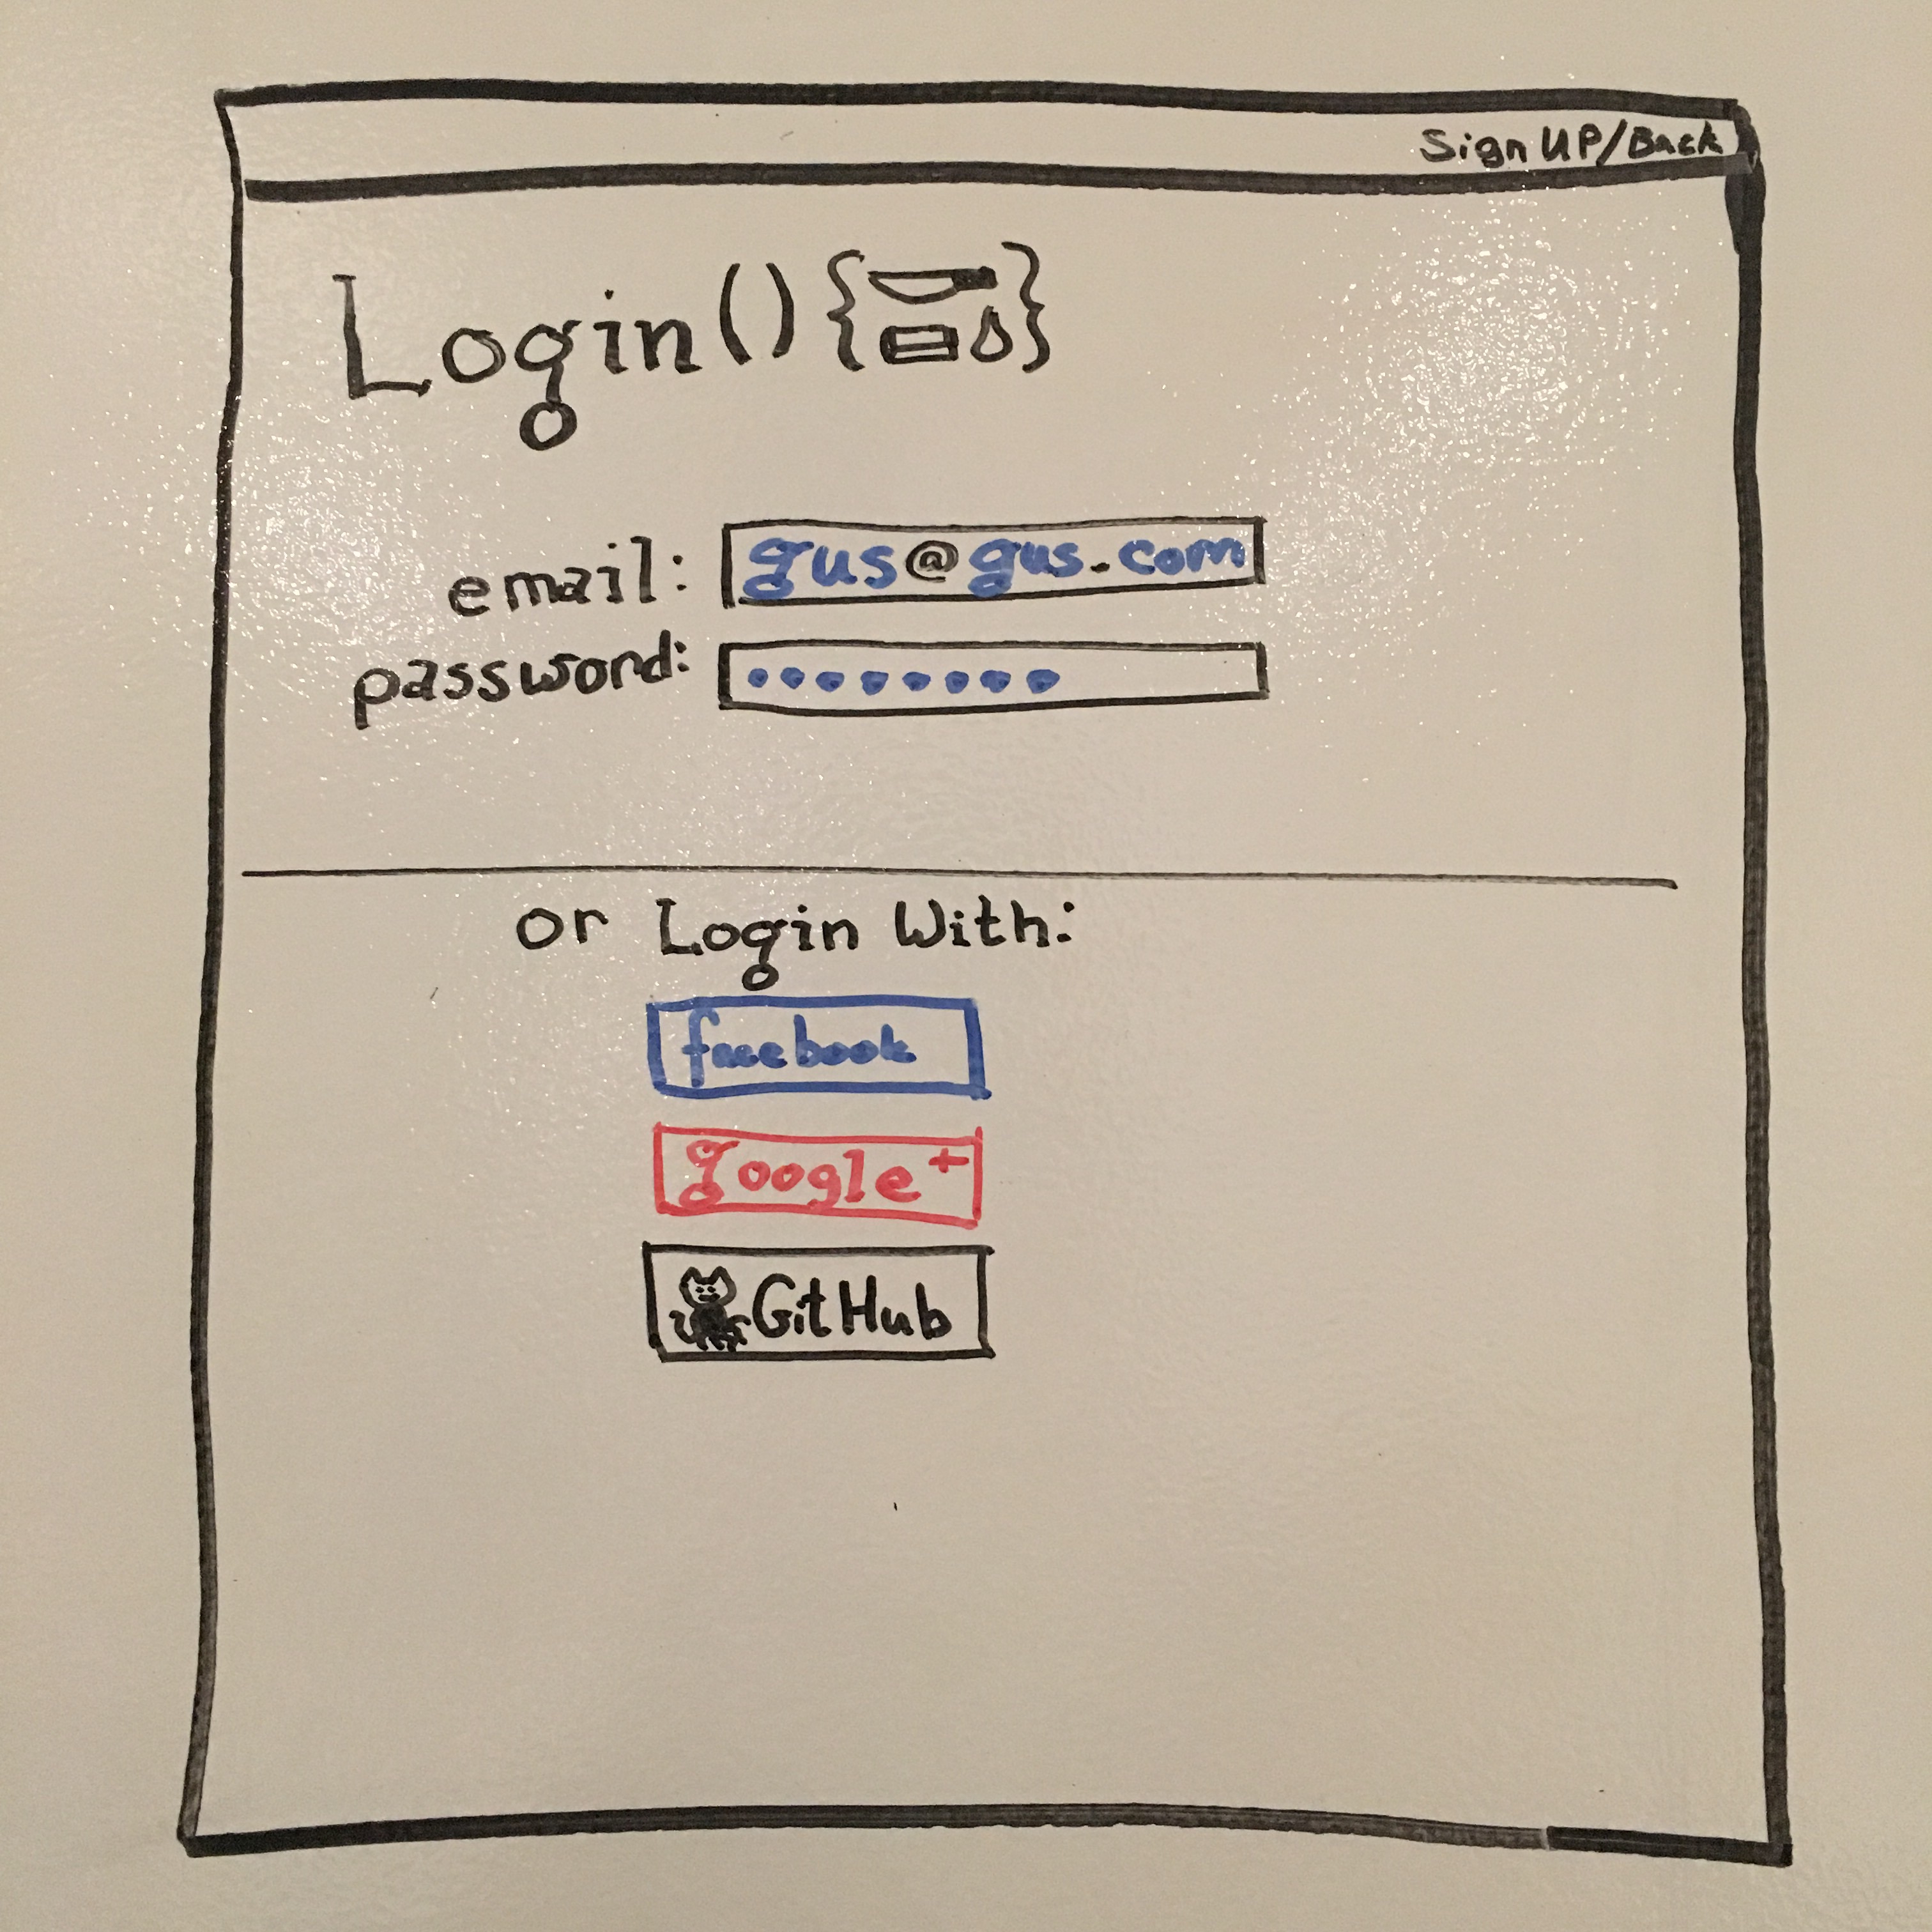 Sign UP/Back
Login(){}
email: gus@gus.com
password: ••••••••
or Login With:
facebook
google+
GitHub